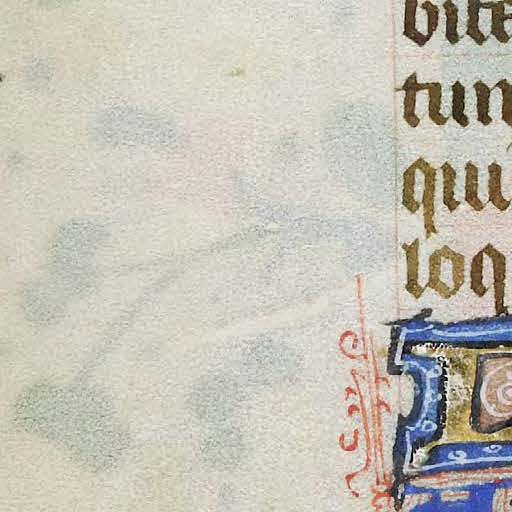 bite
tun
qui
loq